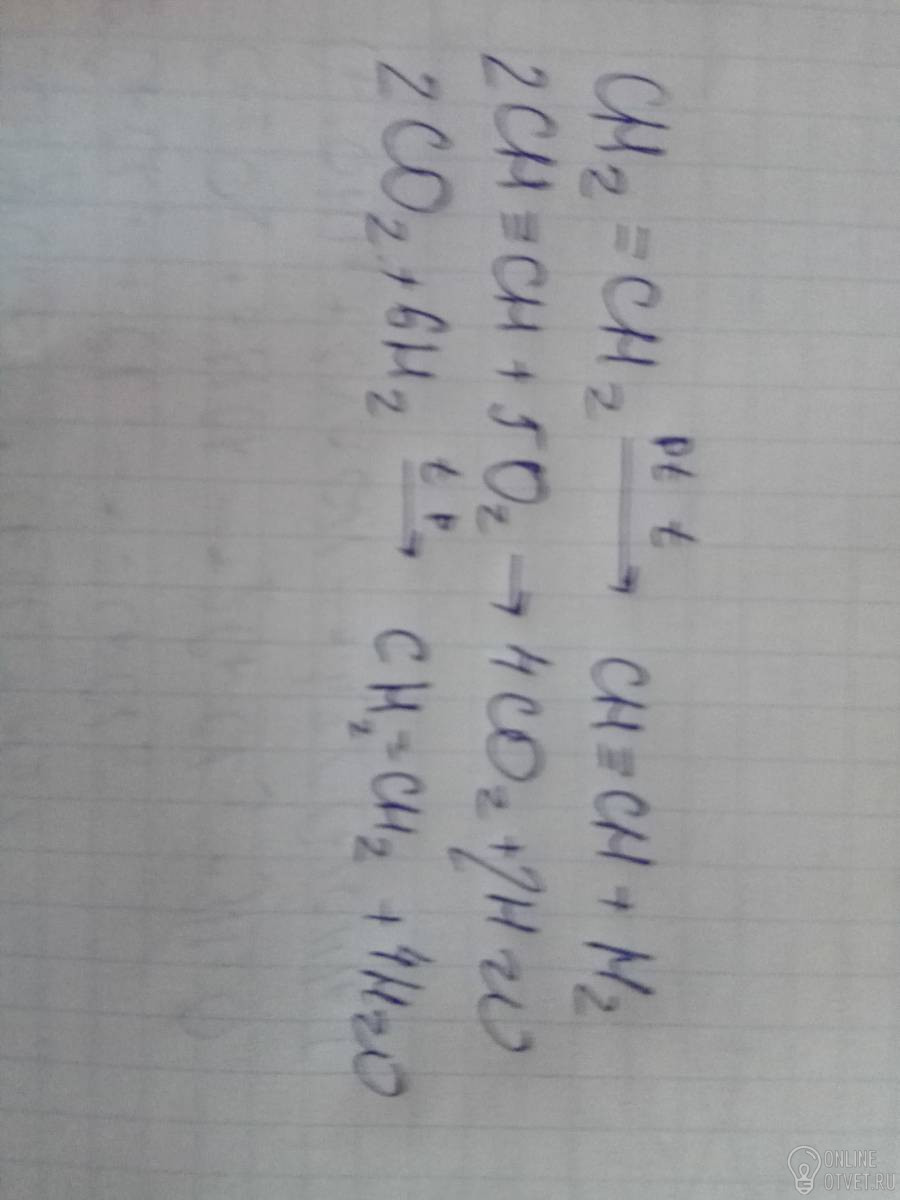 CH2=CH2 pt t → CH≡CH + H2
2CH≡CH + 5O2 → 4CO2 + 2H2O
2CO2 + 6H2 t p → CH2=CH2 + 4H2O
ONLINE
OTVET.RU